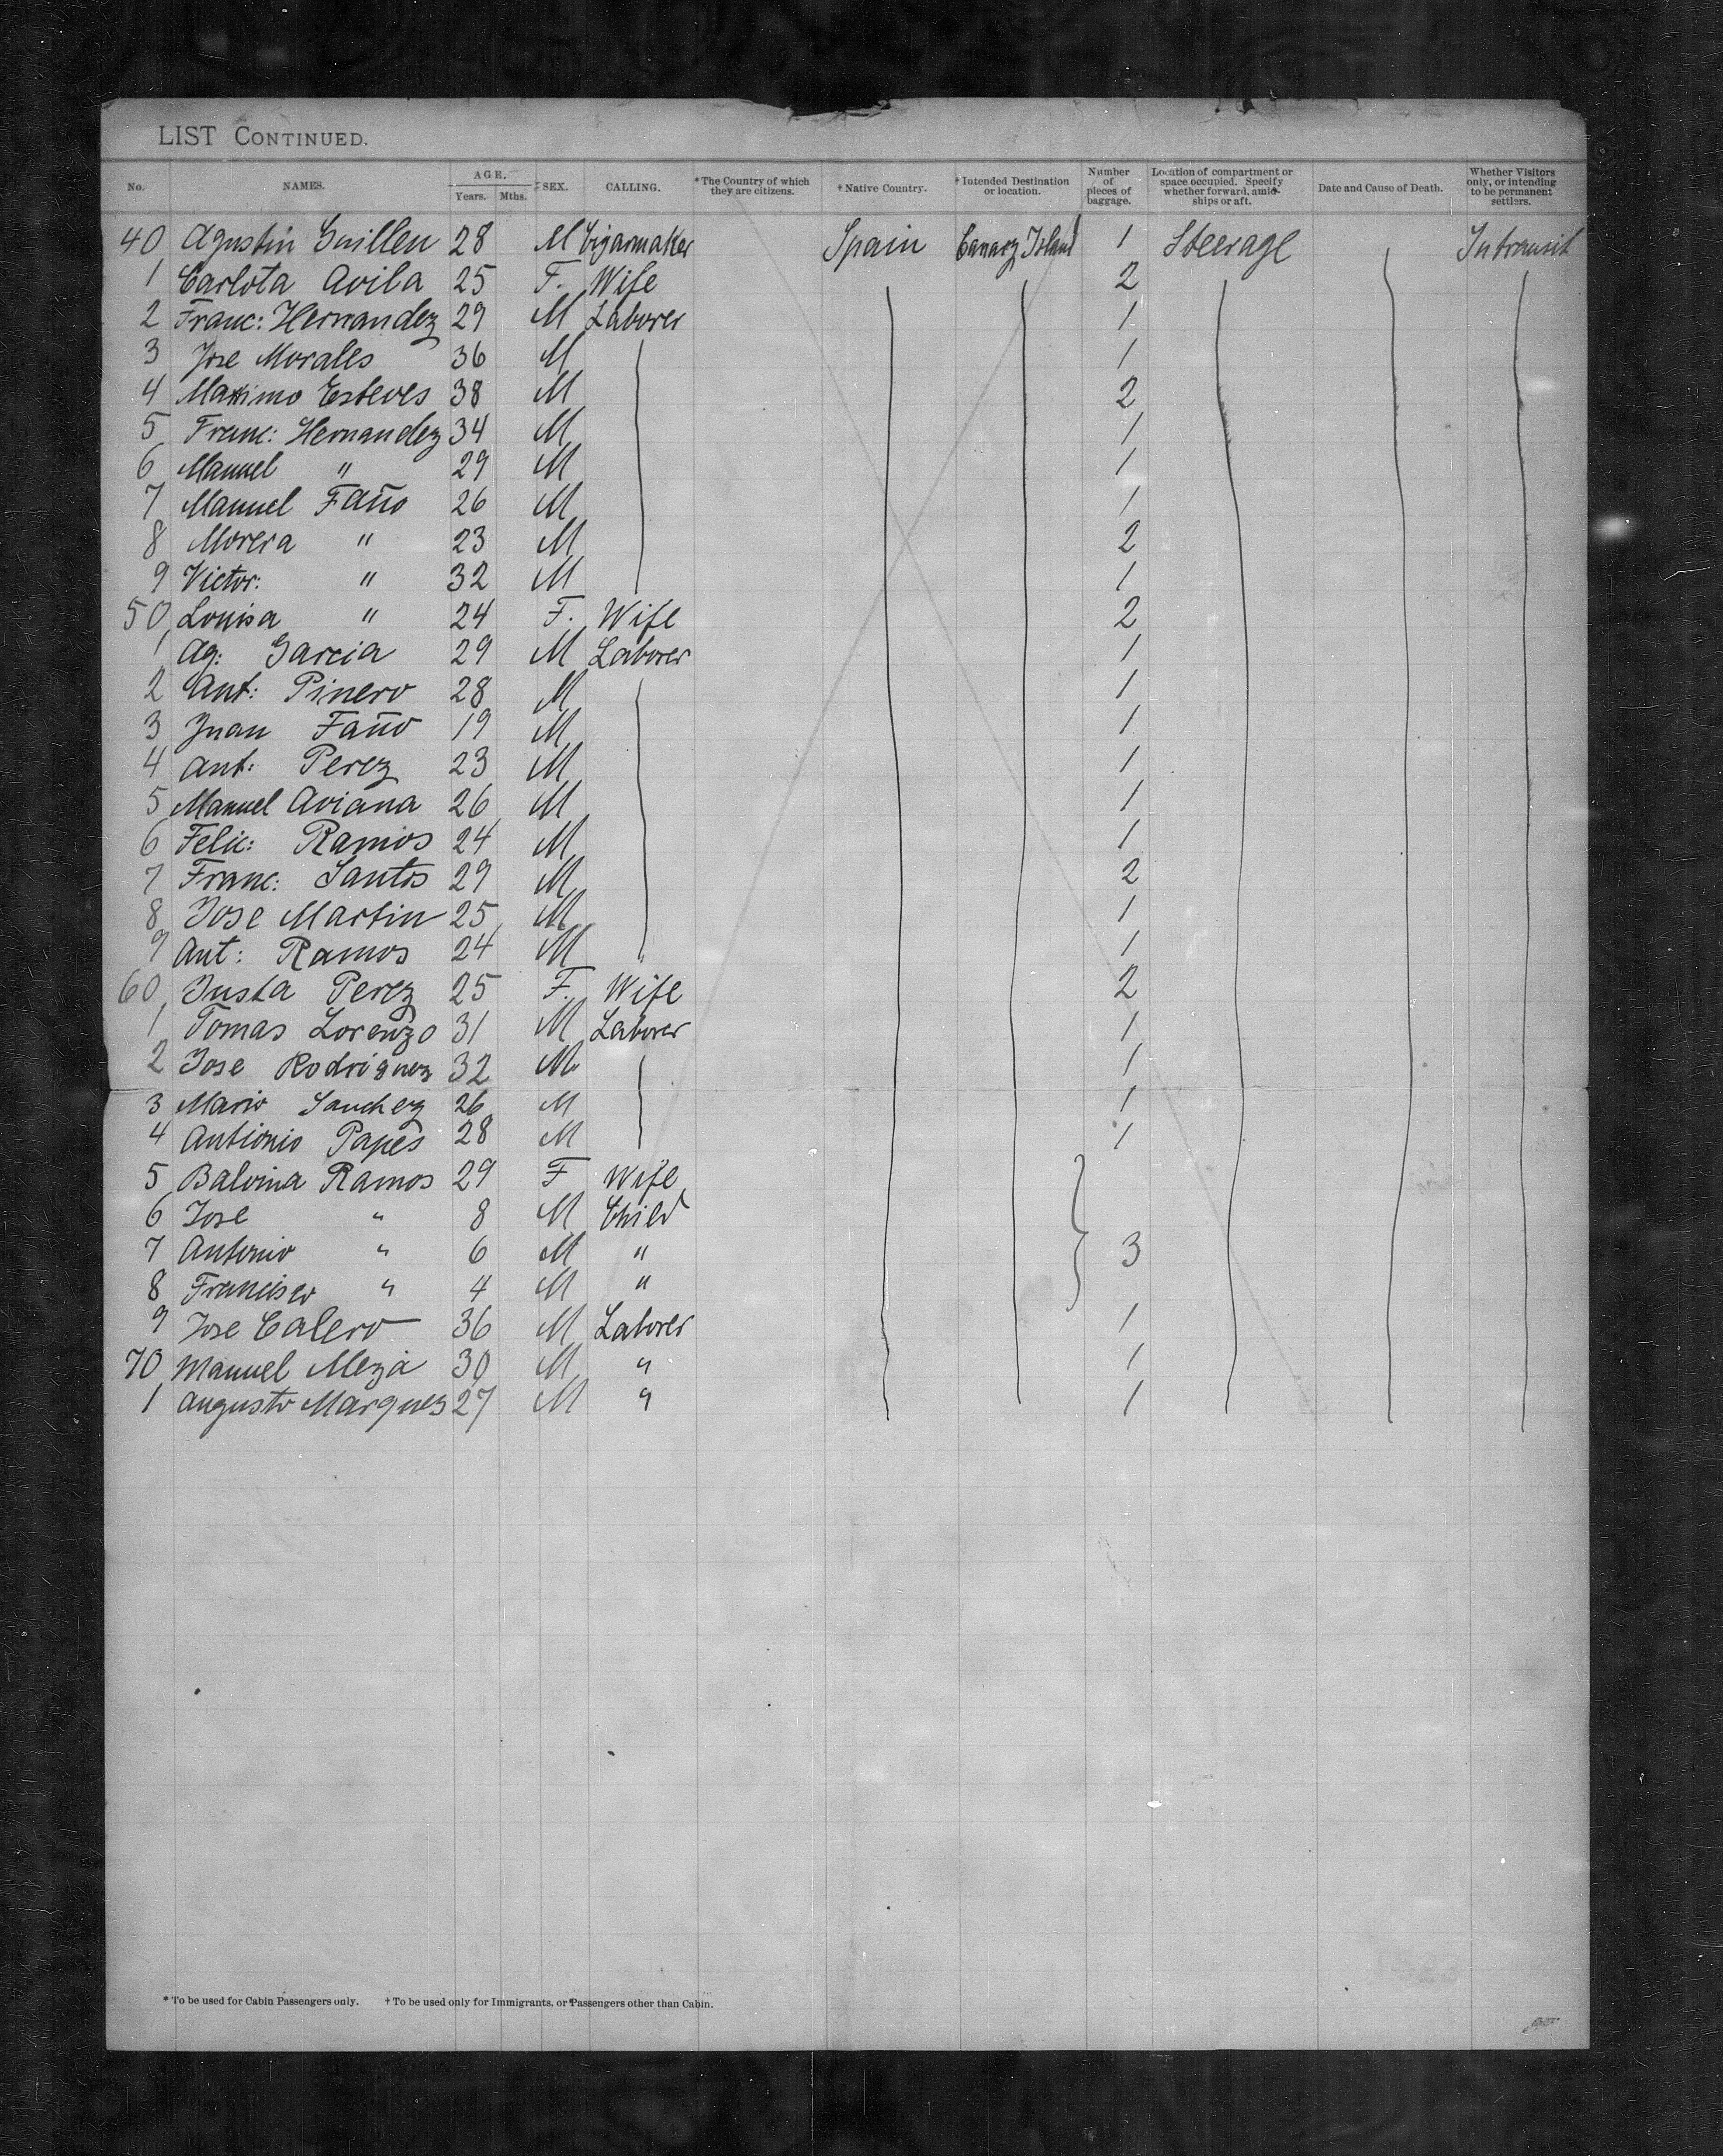 LIST CONTINUED.
No. NAMES. AGE. Years. Mths. ‡ SEX. CALLING. * The Country of which they are citizens. † Native Country. † Intended Destination or location. Number of pieces of baggage. Location of compartment or space occupied. Specify whether forward, amidships or aft. Date and Cause of Death. Whether Visitors only, or intending to be permanent settlers.
40 Agustin Guillen 28 M Cigarmaker Spain Canary Island 1 Steerage Intransit
1 Carlota Avila 25 F. Wife 2
2 Franc: Hernandez 29 M Laborer 1
3 Jose Morales 36 M 1
4 Maximo Esteves 38 M 2
5 Franc: Hernandez 34 M 1
6 Manuel " 29 M 1
7 Manuel Faño 26 M 1
8 Morera " 23 M 2
9 Victor: " 32 M 1
50 Louisa " 24 F. Wife 2
1 Ag: Garcia 29 M Laborer 1
2 Ant: Pinero 28 M 1
3 Juan Faño 19 M 1
4 Ant: Perez 23 M 1
5 Manuel Aviana 26 M 1
6 Felic: Ramos 24 M 1
7 Franc: Santos 29 M 2
8 Jose Martin 25 M 1
9 Ant: Ramos 24 M 1
60 Justa Perez 25 F. Wife 2
1 Tomas Lorenzo 31 M Laborer 1
2 Jose Rodriguez 32 M 1
3 Mario Sanchez 26 M 1
4 Antionio Papes 28 M 1
5 Balvina Ramos 29 F Wife
6 Jose " 8 M Child
7 Antonio " 6 M " 3
8 Francisco " 4 M "
9 Jose Calero 36 M Laborer 1
70 Manuel Meza 30 M " 1
1 Augusto Marquez 27 M " 1
* To be used for Cabin Passengers only. † To be used only for Immigrants, or Passengers other than Cabin.